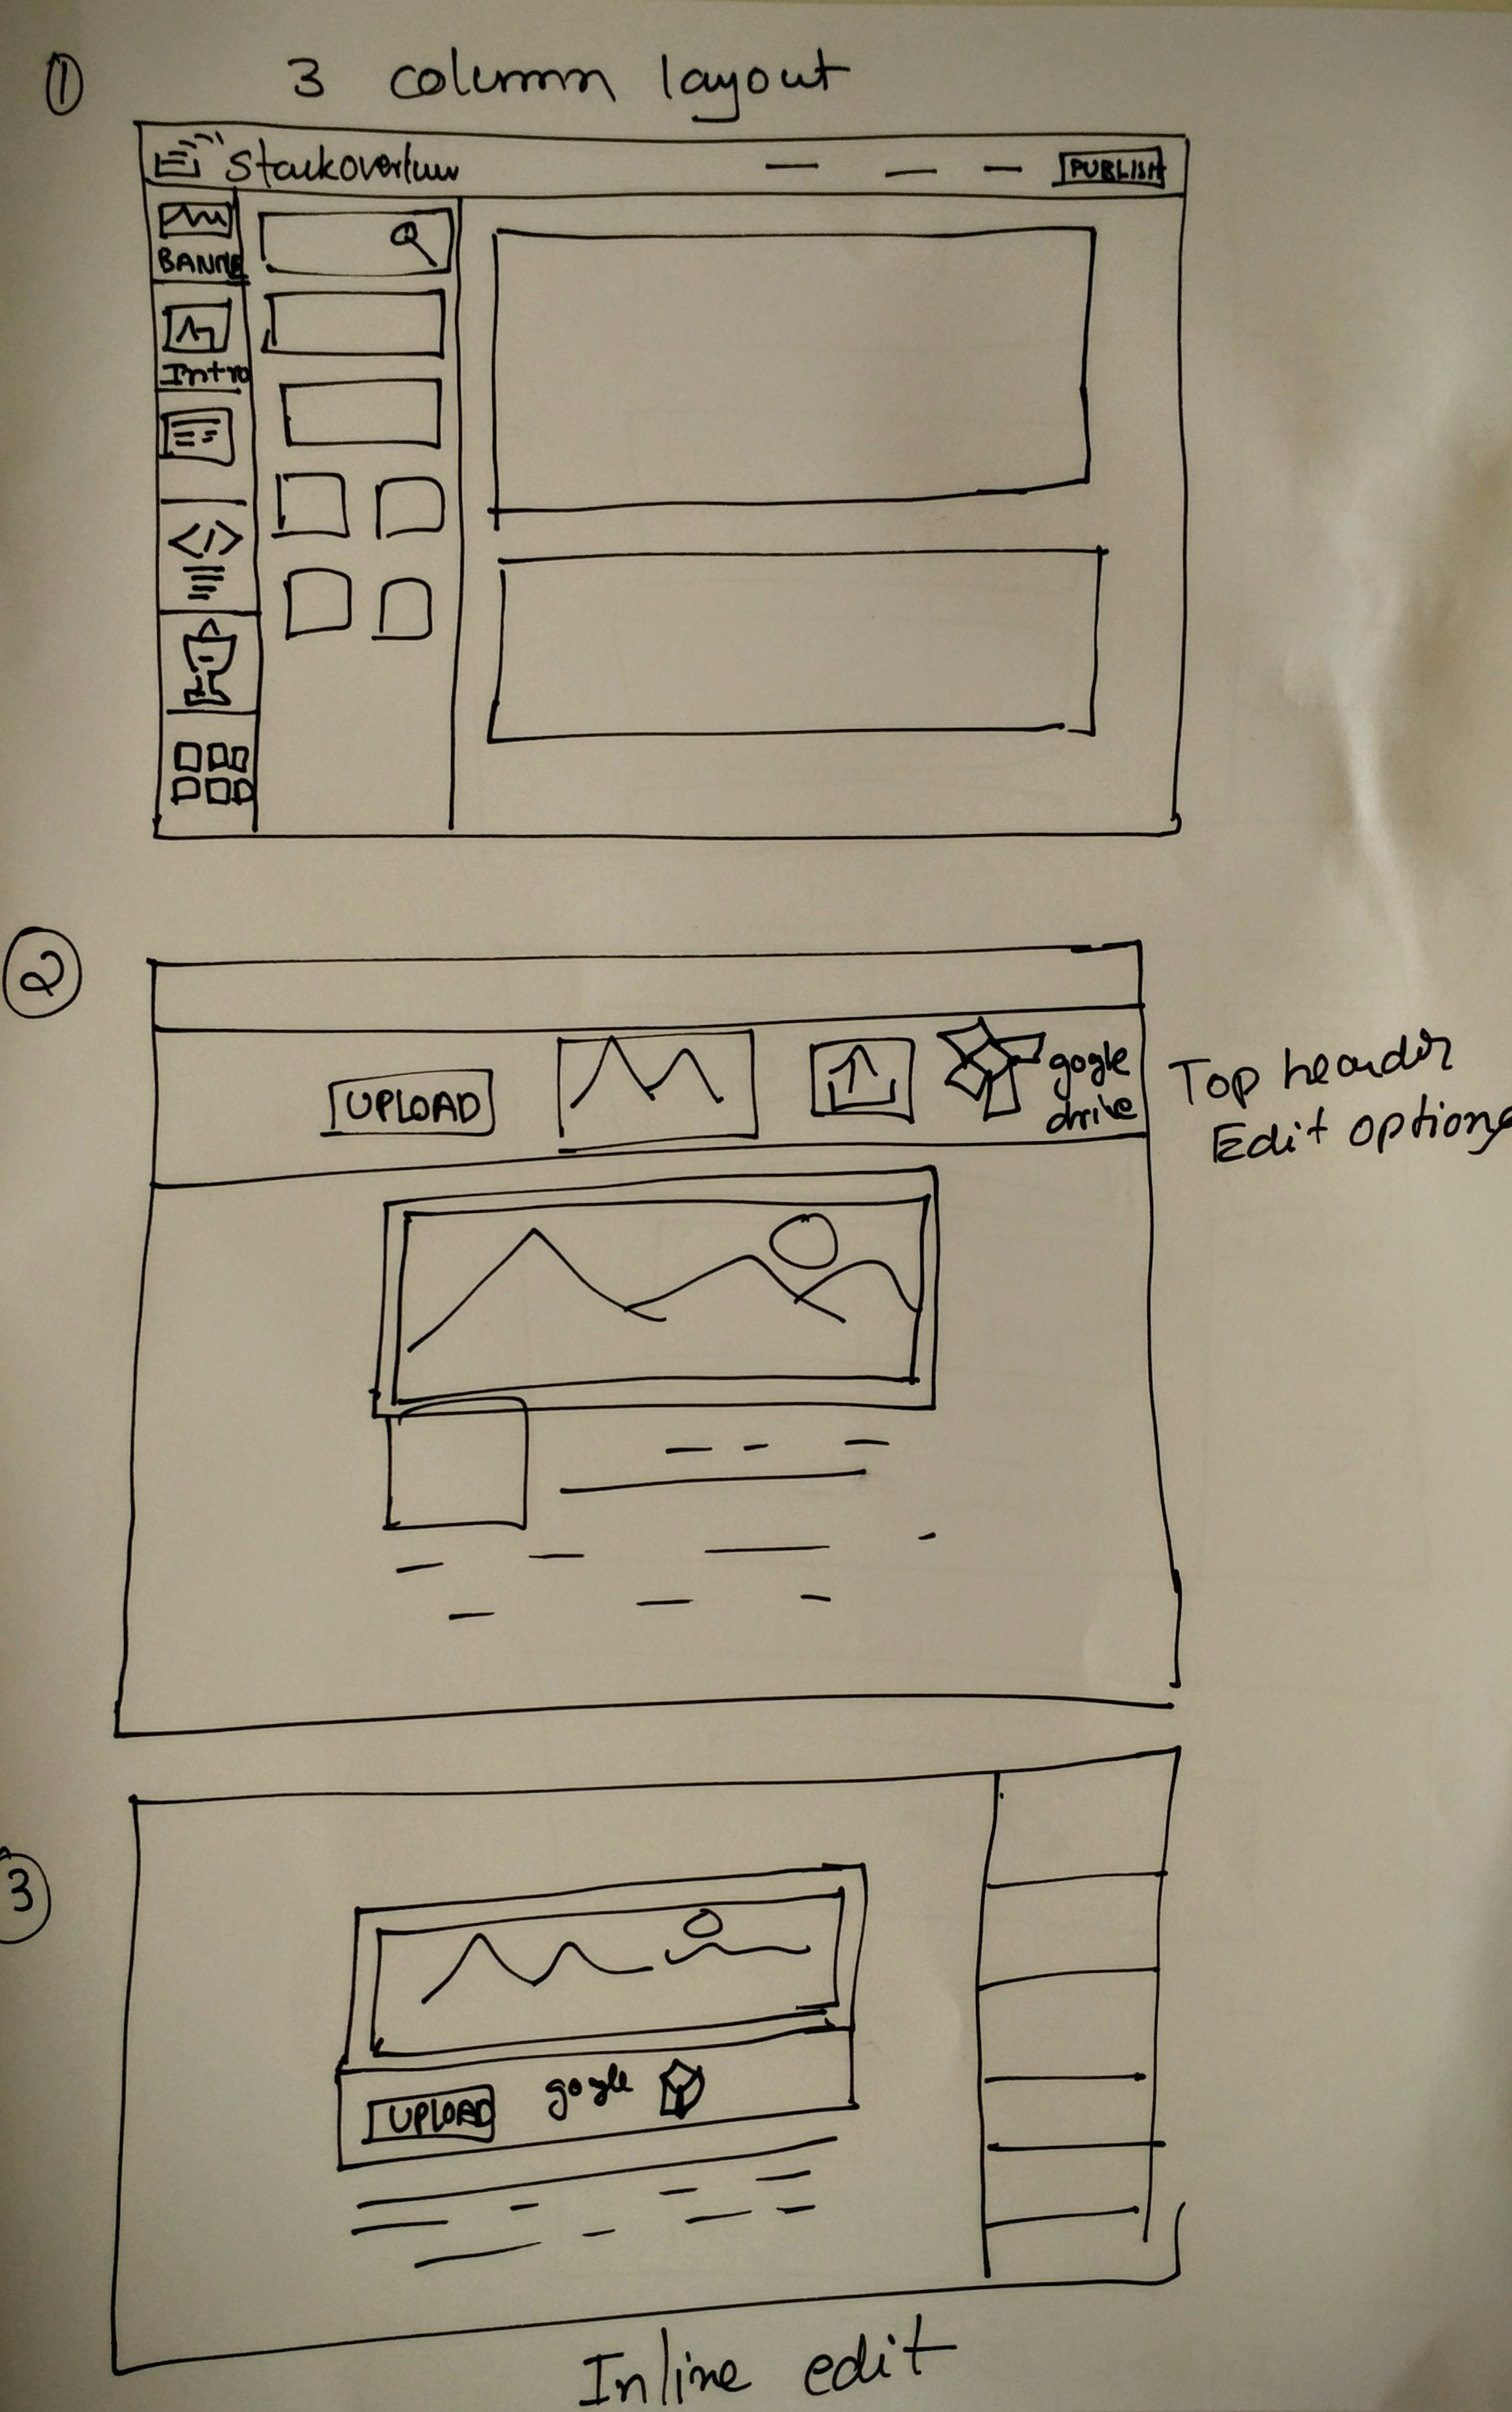 1
3 column layout
Stackoverflow
PUBLISH
BANNE
Intro
</>
2
UPLOAD
google
drive
Top header
Edit options
3
UPLOAD
google
Inline edit